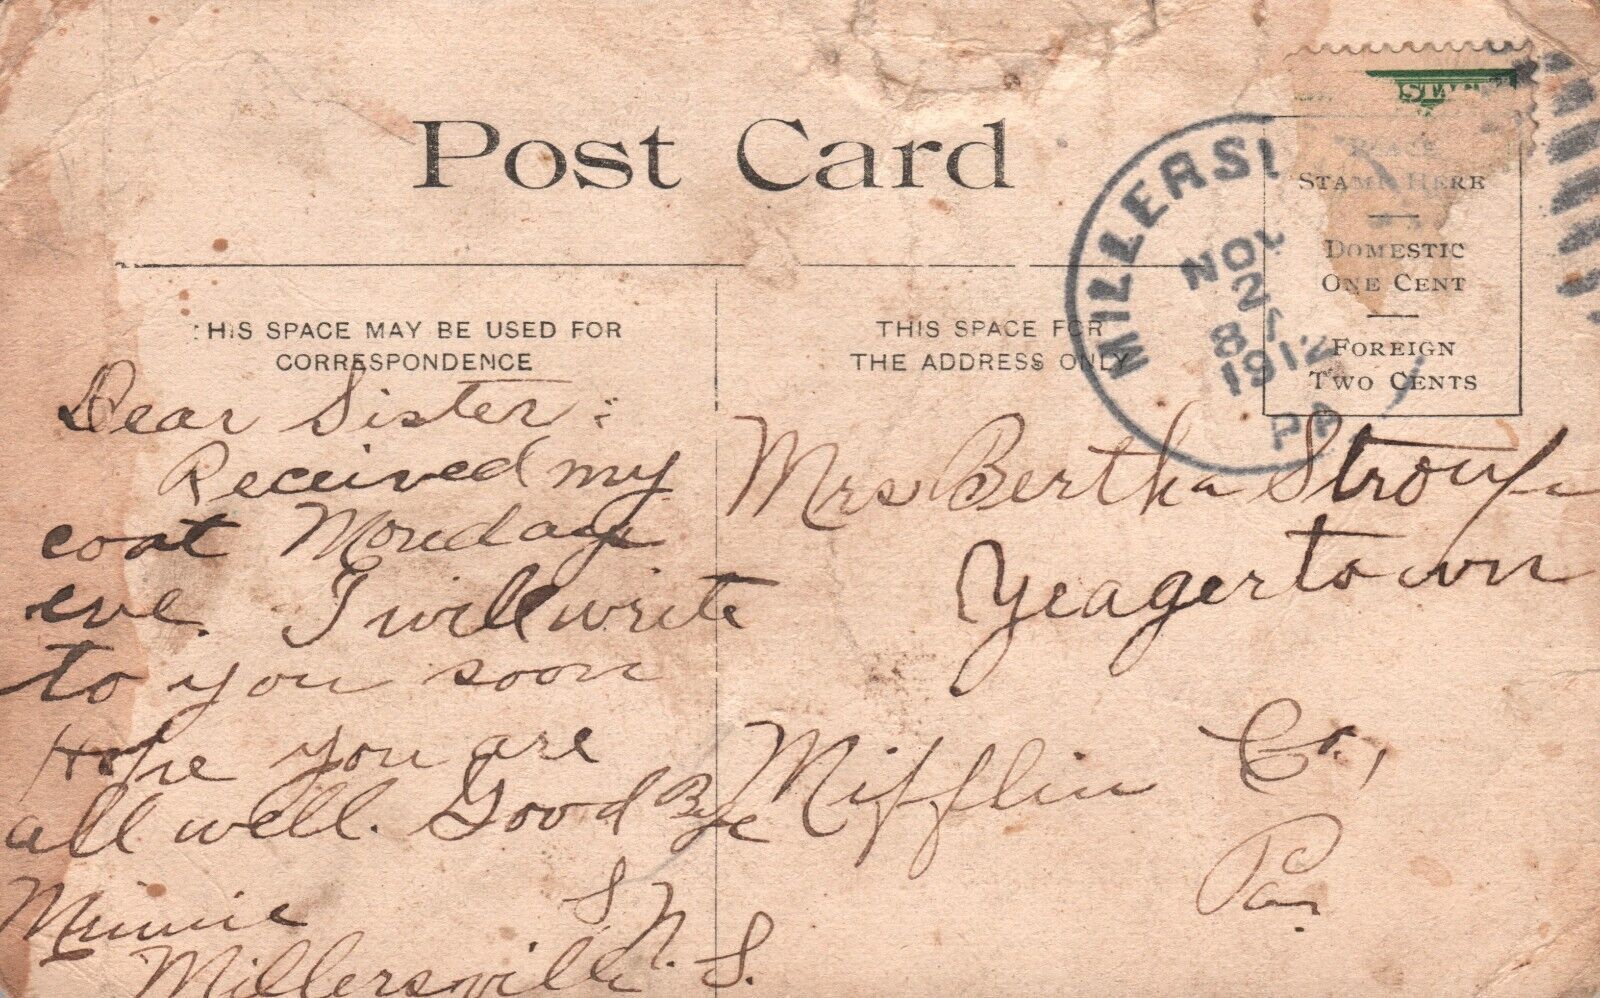 Post Card
THIS SPACE MAY BE USED FOR
CORRESPONDENCE
THIS SPACE FOR
THE ADDRESS ONLY
PLACE
STAMP HERE
DOMESTIC
ONE CENT
FOREIGN
TWO CENTS
MILLERSV
NOV
21
8
1912
PA
Dear Sister:
Received my
coat Monday
eve. I will write
to you soon
Hope you are
all well. Good Bye
Minnie
S. N. S.
Millersville
Mrs Bertha
Yeagertown
Mifflin Co.,
Pa.